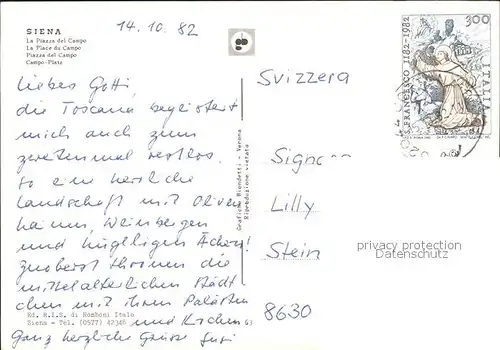 14.10.82
SIENA
La Piazza del Campo
La Place du Campo
Piazza del Campo
Campo-Platz
Liebes Gotti,
die Toscana begeistert
mich auch zum
zweitenmal restlos.
So eine herrliche
Landschaft mit Oliven
hainen, Weinbergen
und hügligen Äckern!
Zuoberst thronen die
mittelalterlichen Städt
chen mit ihren Palästen
und Kirchen
Ganz herzliche Grüsse Susi
Ed. R.I.S. di Romboni Italo
Siena - Tel. (0577) 42346
63
Grafiche Biondetti - Verona
Riproduzione vietata
S. FRANCESCO 1182-1982
300
ITALIA
Svizzera
Signora
Lilly
Stein
8630
privacy protection
Datenschutz